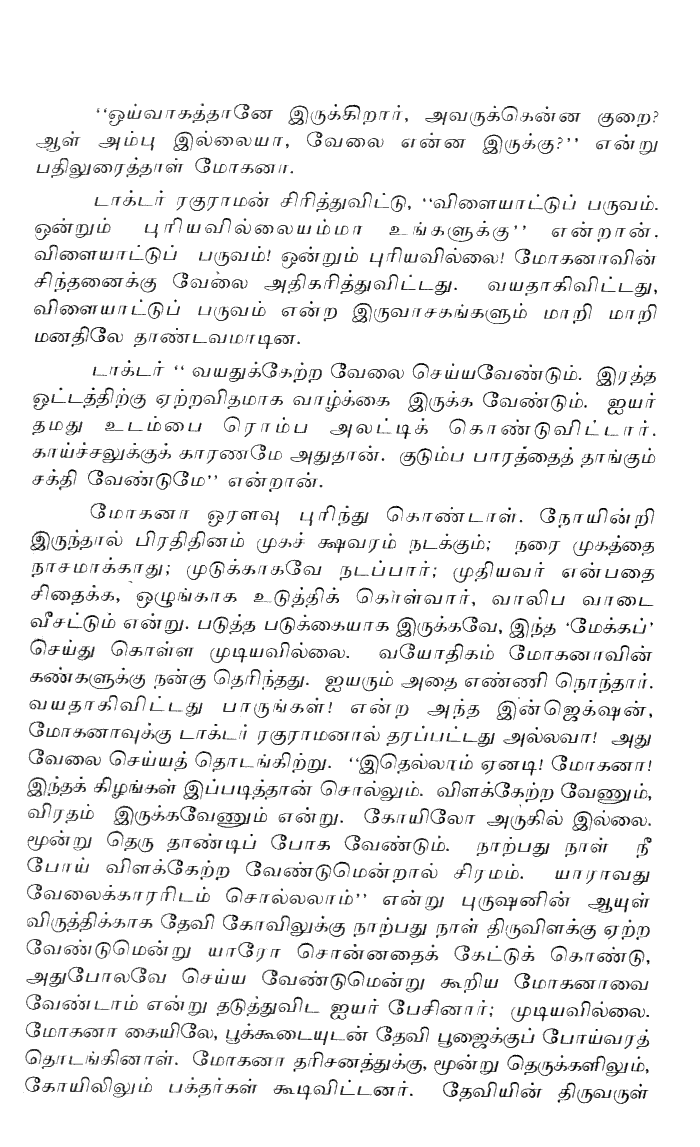 ‘‘ஒய்வாகத்தானே இருக்கிறார், அவருக்கென்ன குறை?
ஆள் அம்பு இல்லையா, வேலை என்ன இருக்கு?’’ என்று
பதிலுரைத்தாள் மோகனா.
டாக்டர் ரகுராமன் சிரித்துவிட்டு, ‘‘விளையாட்டுப் பருவம்.
ஒன்றும் புரியவில்லையம்மா உங்களுக்கு’’ என்றான்.
விளையாட்டுப் பருவம்! ஒன்றும் புரியவில்லை! மோகனாவின்
சிந்தனைக்கு வேலை அதிகரித்துவிட்டது. வயதாகிவிட்டது,
விளையாட்டுப் பருவம் என்ற இருவாசகங்களும் மாறி மாறி
மனதிலே தாண்டவமாடின.
டாக்டர் ‘‘ வயதுக்கேற்ற வேலை செய்யவேண்டும். இரத்த
ஒட்டத்திற்கு ஏற்றவிதமாக வாழ்க்கை இருக்க வேண்டும். ஐயர்
தமது உடம்பை ரொம்ப அலட்டிக் கொண்டுவிட்டார்.
காய்ச்சலுக்குக் காரணமே அதுதான். குடும்ப பாரத்தைத் தாங்கும்
சக்தி வேண்டுமே’’ என்றான்.
மோகனா ஒரளவு புரிந்து கொண்டாள். நோயின்றி
இருந்தால் பிரதிதினம் முகச் க்ஷவரம் நடக்கும்; நரை முகத்தை
நாசமாக்காது; முடுக்காகவே நடப்பார்; முதியவர் என்பதை
சிதைக்க, ஒழுங்காக உடுத்திக் கொள்வார், வாலிப வாடை
வீசட்டும் என்று. படுத்த படுக்கையாக இருக்கவே, இந்த ‘மேக்கப்’
செய்து கொள்ள முடியவில்லை. வயோதிகம் மோகனாவின்
கண்களுக்கு நன்கு தெரிந்தது. ஐயரும் அதை எண்ணி நொந்தார்.
வயதாகிவிட்டது பாருங்கள்! என்ற அந்த இன்ஜெக்ஷன்,
மோகனாவுக்கு டாக்டர் ரகுராமனால் தரப்பட்டது அல்லவா! அது
வேலை செய்யத் தொடங்கிற்று. ‘‘இதெல்லாம் ஏனடி! மோகனா!
இந்தக் கிழங்கள் இப்படித்தான் சொல்லும். விளக்கேற்ற வேணும்,
விரதம் இருக்கவேணும் என்று. கோயிலோ அருகில் இல்லை.
மூன்று தெரு தாண்டிப் போக வேண்டும். நாற்பது நாள் நீ
போய் விளக்கேற்ற வேண்டுமென்றால் சிரமம். யாராவது
வேலைக்காரரிடம் சொல்லலாம்’’ என்று புருஷனின் ஆயுள்
விருத்திக்காக தேவி கோவிலுக்கு நாற்பது நாள் திருவிளக்கு ஏற்ற
வேண்டுமென்று யாரோ சொன்னதைக் கேட்டுக் கொண்டு,
அதுபோலவே செய்ய வேண்டுமென்று கூறிய மோகனாவை
வேண்டாம் என்று தடுத்துவிட ஐயர் பேசினார்; முடியவில்லை.
மோகனா கையிலே, பூக்கூடையுடன் தேவி பூஜைக்குப் போய்வரத்
தொடங்கினாள். மோகனா தரிசனத்துக்கு, மூன்று தெருக்களிலும்,
கோயிலிலும் பக்தர்கள் கூடிவிட்டனர். தேவியின் திருவருள்